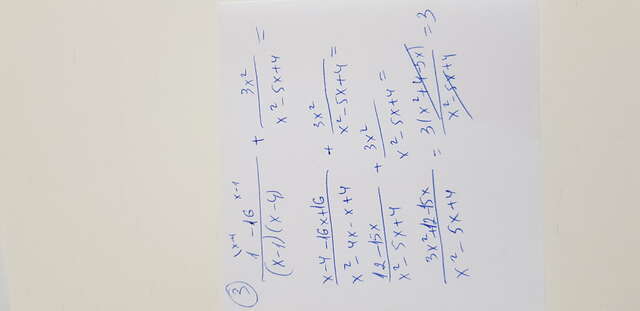 3
1^{x-4} - 16^{x-1} / (x-1)(x-4) + 3x² / x²-5x+4 =
x-4-16x+16 / x²-4x-x+4 + 3x² / x²-5x+4 =
12-15x / x²-5x+4 + 3x² / x²-5x+4 =
3x²+12-15x / x²-5x+4 = 3(x²+4-5x) / x²-5x+4 = 3